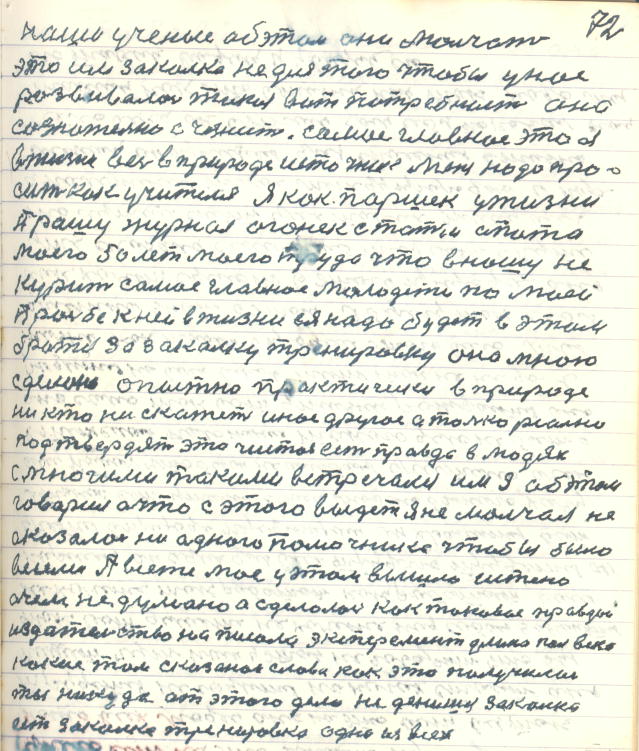 72
наши ученые об этом они молчат
это им закалка не для этого чтобы у нас
розвивалос такая вот потребност она
созnателно а чезнит. самое главное это я
в жизни всех в природе источник меня надо про-
сит как учителя я как. паршек у жизни
прашу журнал огонек статя опота
моего 50 лет моего труда что в нашу не
курит самое главное молодежи по моей
прозбе к ней в жизни ей надо будет в этом
братся за закалку тренировку она мною
сделана опытно практически в природе
ни кто ни скажет иное другое а толко реално
подтвердят это чистая ест правда в людях
с многими такими встречался им я об этом
говорил а что с этого выдет я не молчал не
оказалос ни одного помочника чтобы было
вместе мое у этом вышло
о чем не думано а сделолос как таковое правдой
издателство написала эксперемент длина пол века
какие там сказаное слова как это получилос
ты никуда от этого дело не дениш закалка
ест закалка тренировка одна из всех